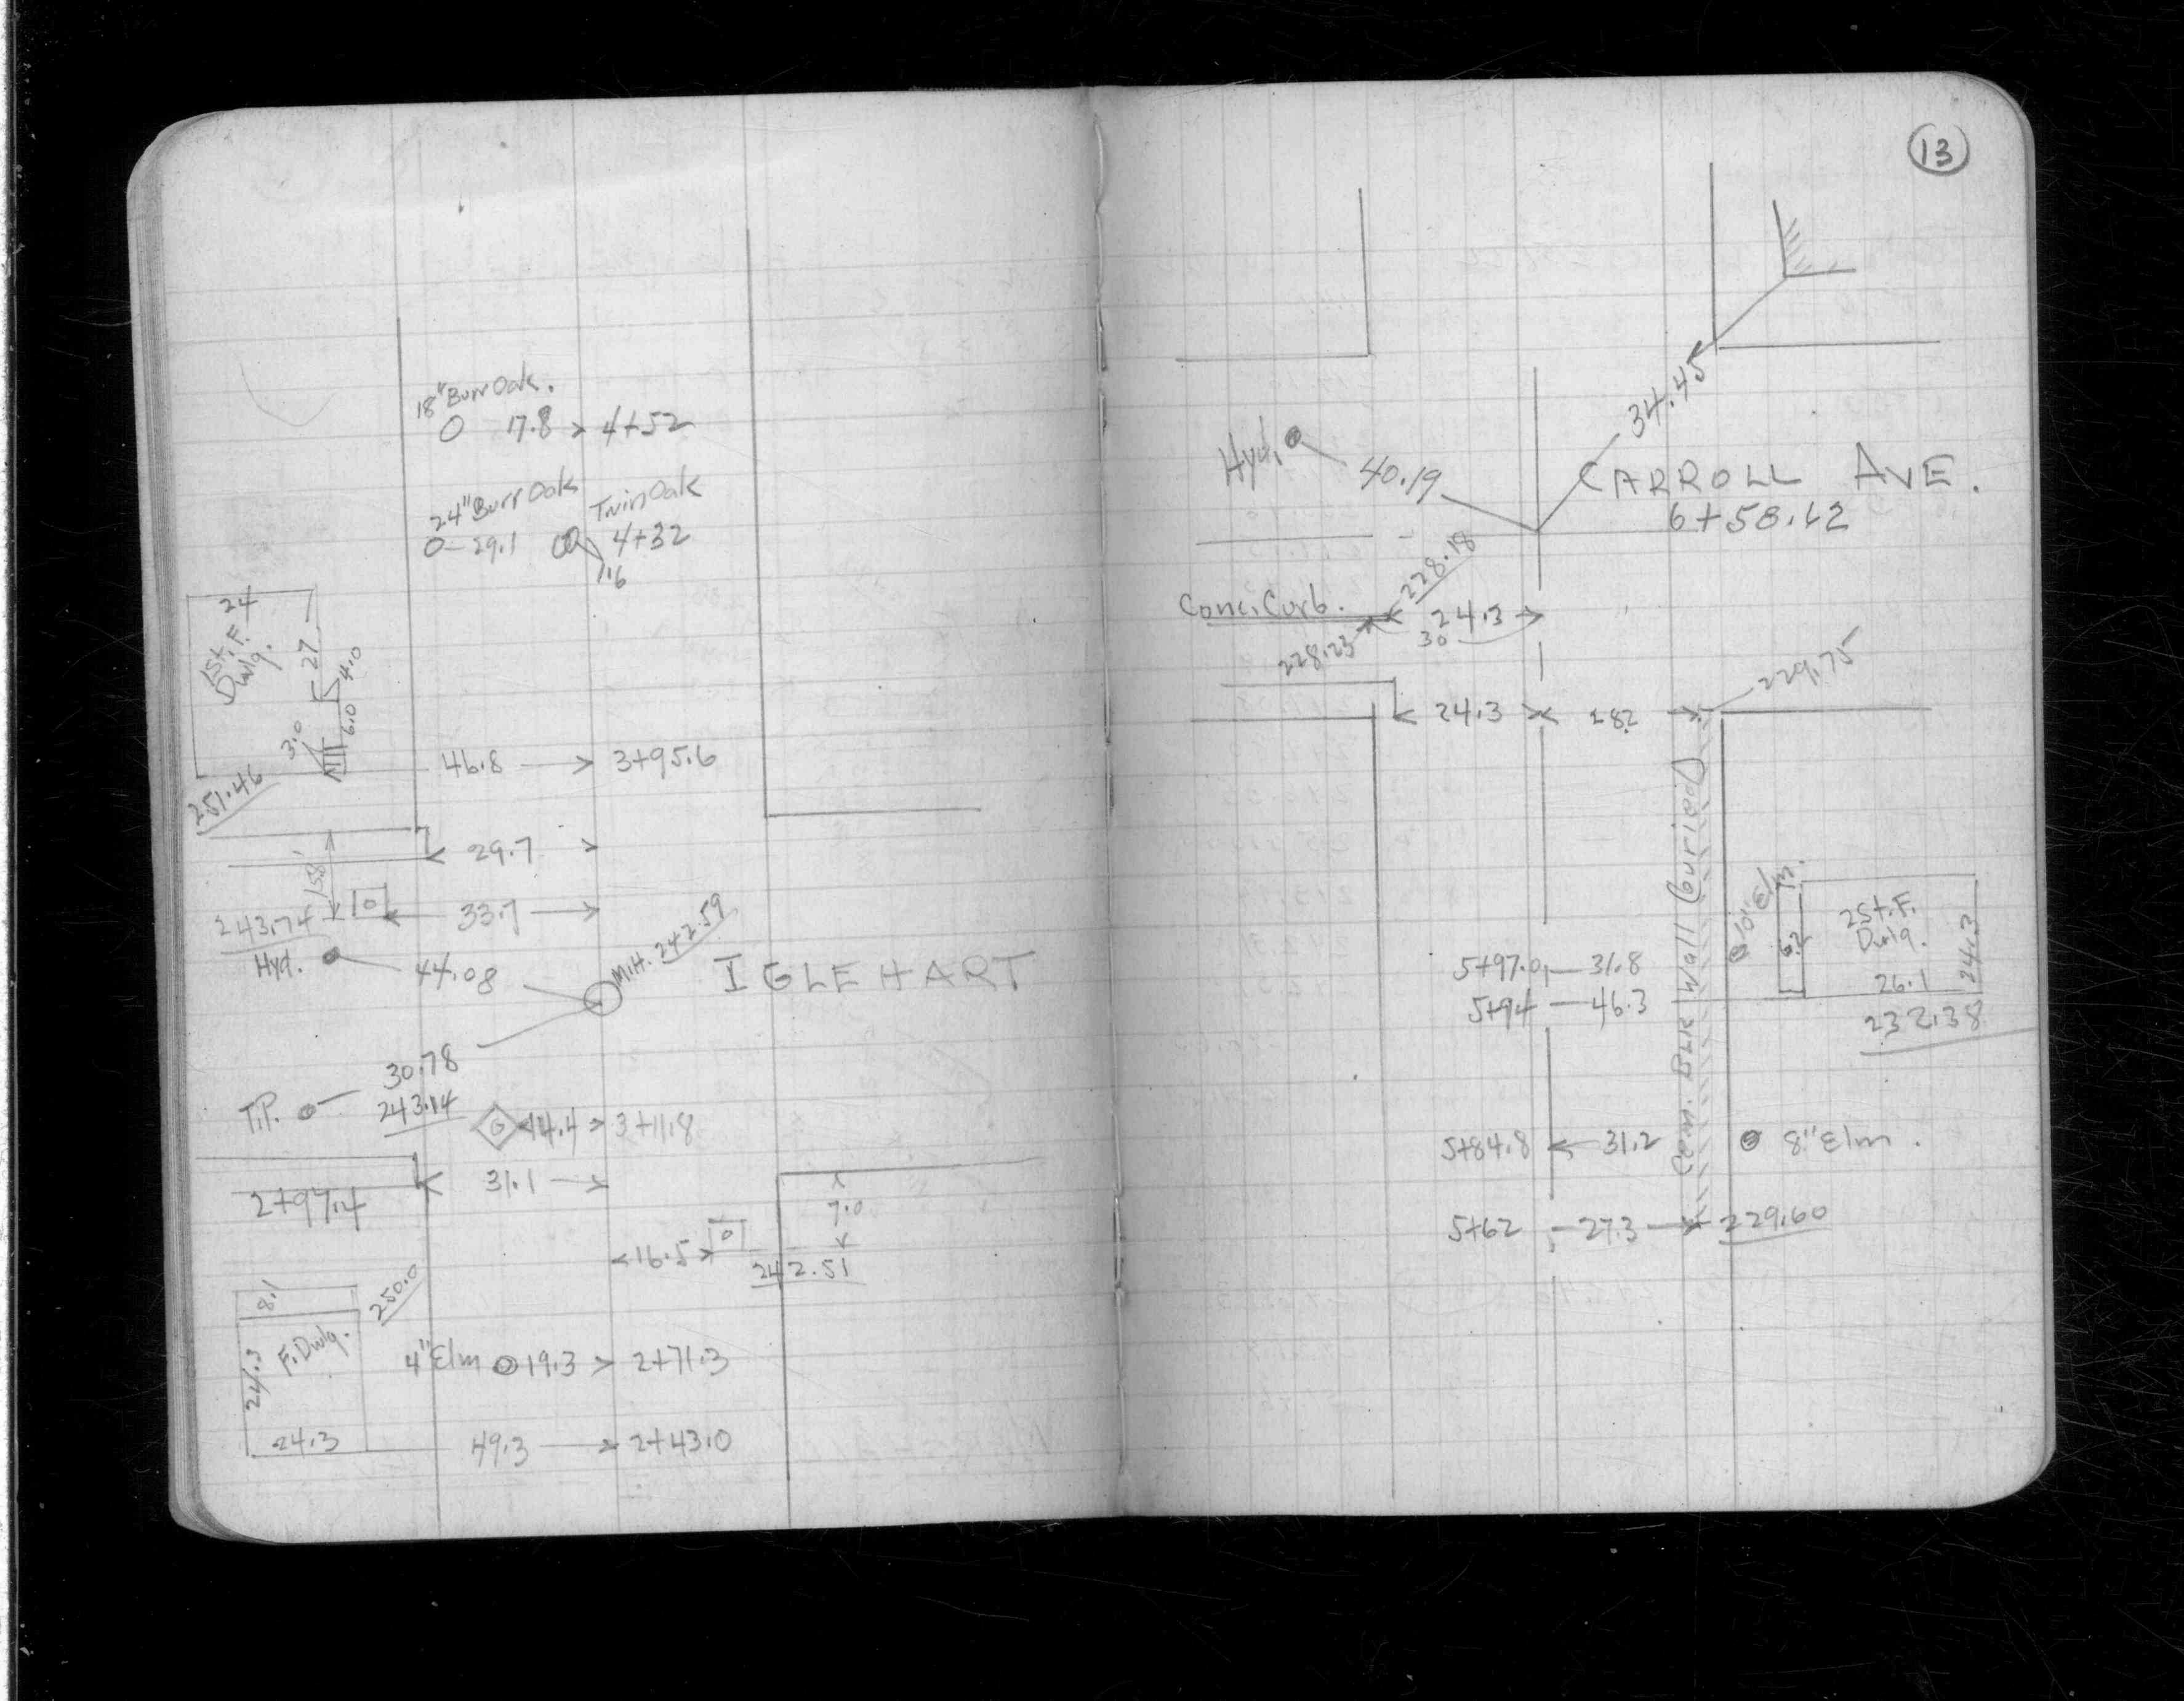 18" Burr Oak.
17.8 > 4+52
24" Burr Oak Twin Oak
29.1 4+32
11.6
24
1St. F.
Dwlg.
27
4.0
6.0
3.0
251.46
46.8 3+95.6
29.7
15.8'
243.74
33.7
Hyd.
44.08
M.H. 242.59
IGLEHART
30.78
T.P. 243.14
G 14.4 > 3+11.8
31.1
2+97.4
7.0
16.5
242.51
8.1
250.0
24.3
F. Dwlg.
4" Elm 19.3 > 2+71.3
24.3
49.3 2+43.0
13
34.45
Hyd.
40.19
CARROLL AVE.
6+58.12
228.18
Conc. Curb.
24.3
30
228.23
229.75
24.3 28.2
Cem. Blk Wall (buried)
10" Elm
7.3
6.2
2St. F.
Dwlg.
24.3
26.1
232.38
5+97.0 31.8
5+94 46.3
5+84.8 31.2 8" Elm.
5+62 27.3 229.60